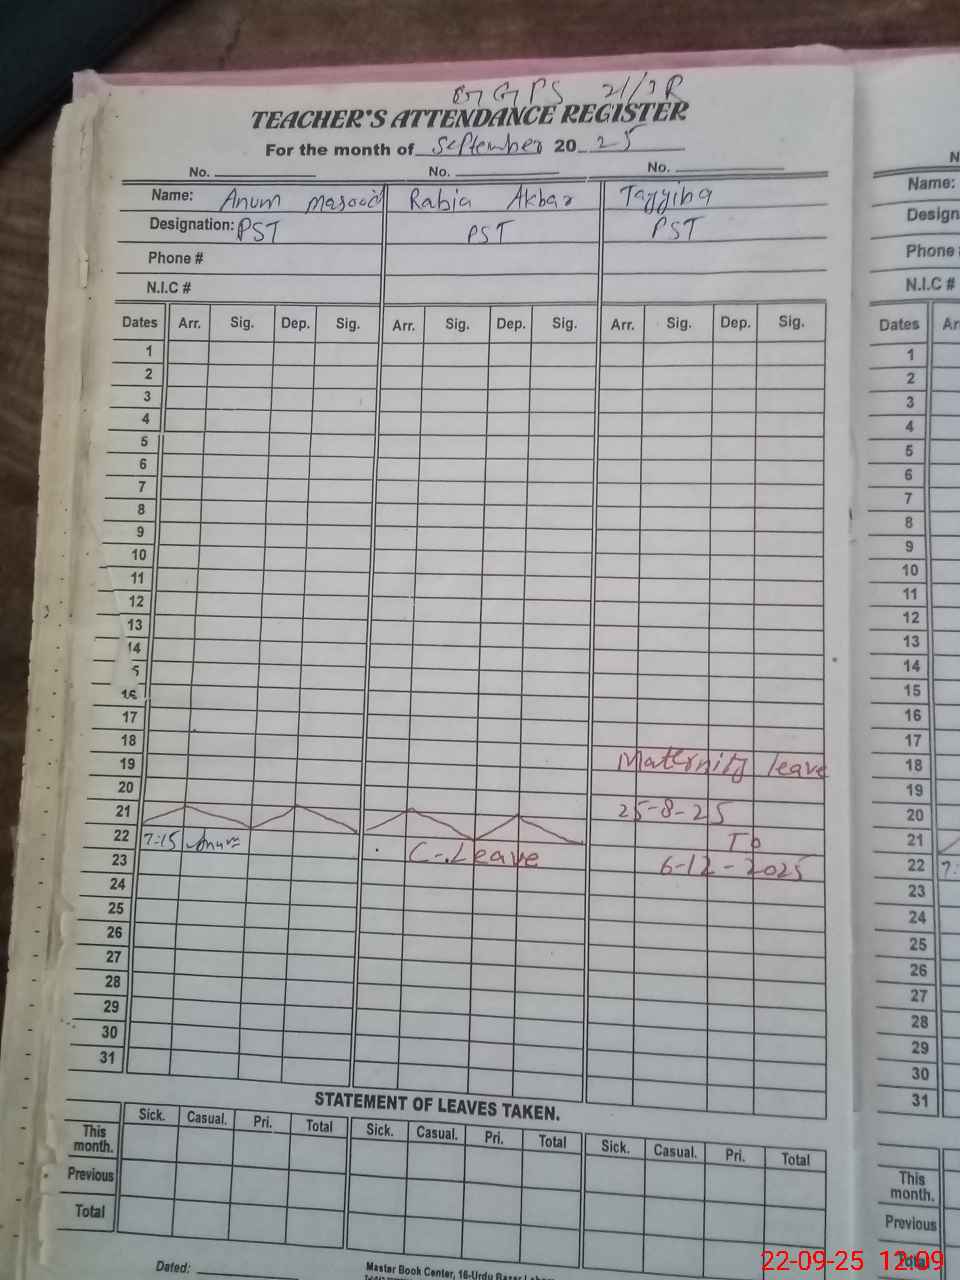 GGPS 21/3R
TEACHER'S ATTENDANCE REGISTER
For the month of September 20 25
No. No. No.
Name: Anum Masood Rabia Akbar Tayyiba
Designation: PST PST PST
Phone #
N.I.C #
Dates Arr. Sig. Dep. Sig. Arr. Sig. Dep. Sig. Arr. Sig. Dep. Sig.
1
2
3
4
5
6
7
8
9
10
11
12
13
14
5
16
17
18
19 Maternity leave
20
21 25-8-25
22 7:15 Anum C-Leave To
23 6-12-2025
24
25
26
27
28
29
30
31
STATEMENT OF LEAVES TAKEN.
Sick. Casual. Pri. Total Sick. Casual. Pri. Total Sick. Casual. Pri. Total
This month.
Previous
Total
Dated:
Master Book Center, 16-Urdu Bazar
N
Name:
Design
Phone
N.I.C #
Dates Ar
1
2
3
4
5
6
7
8
9
10
11
12
13
14
15
16
17
18
19
20
21
22 7:
23
24
25
26
27
28
29
30
31
This month.
Previous
Total
22-09-25 12:09